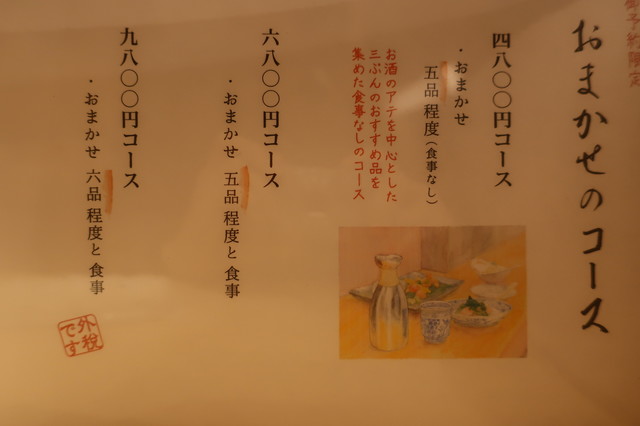 要予約限定
おまかせのコース
四八〇〇円コース
・おまかせ
五品程度(食事なし)
お酒のアテを中心とした
三ぶんのおすすめ品を
集めた食事なしのコース
六八〇〇円コース
・おまかせ 五品程度と食事
九八〇〇円コース
・おまかせ 六品程度と食事
外税
です